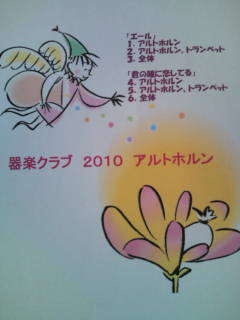 「エール」
1. アルトホルン
2. アルトホルン、トランペット
3. 全体
「君の瞳に恋してる」
4. アルトホルン
5. アルトホルン、トランペット
6. 全体
器楽クラブ 2010 アルトホルン